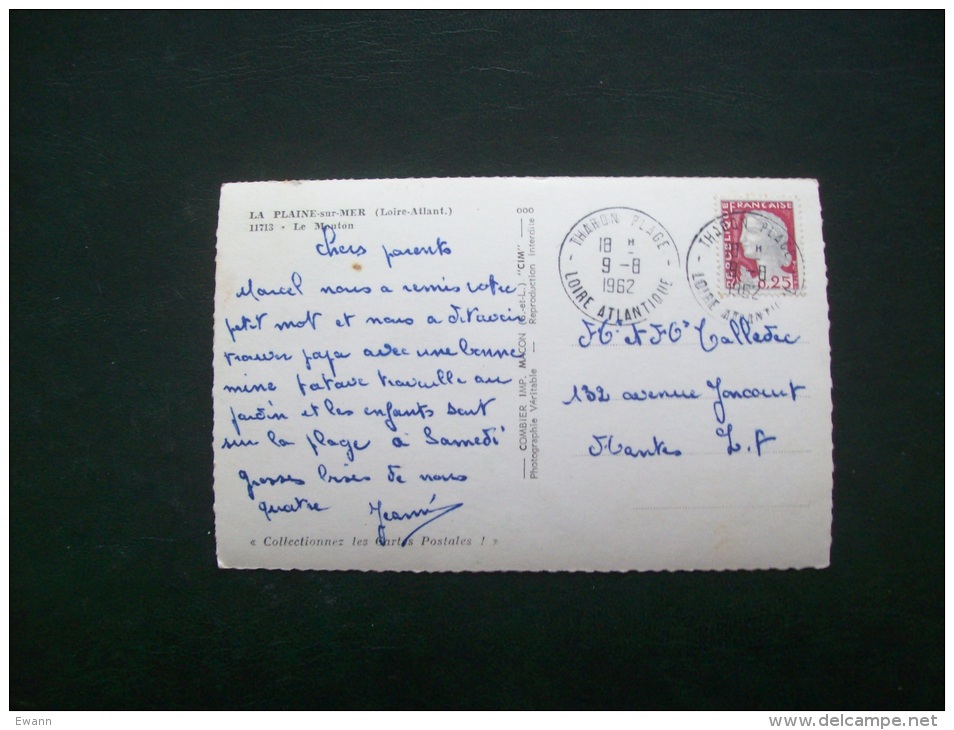 LA PLAINE-sur-MER (Loire-Atlant.)
11713 - Le Mouton
Chers parents
Marcel nous a remis votre
petit mot et nous a dit avoir
trouver papa avec une bonne
mine travaille au
jardin et les enfants sont
sur la plage à Samedi
grosses bises de nous
quatre
« Collectionnez les Cartes Postales ! »
COMBIER IMP. MACON (S.-et-L.) "CIM"
Photographie Véritable — Reproduction Interdite
ooo
THARON PLAGE
18 H
9 -8
1962
LOIRE ATLANTIQUE
FRANÇAISE
0,25
THARON PLAGE
1962
LOIRE ATLANTI
Mr et Mme
132 avenue Joncourt
Nantes L.A
Ewann
www.delcampe.net